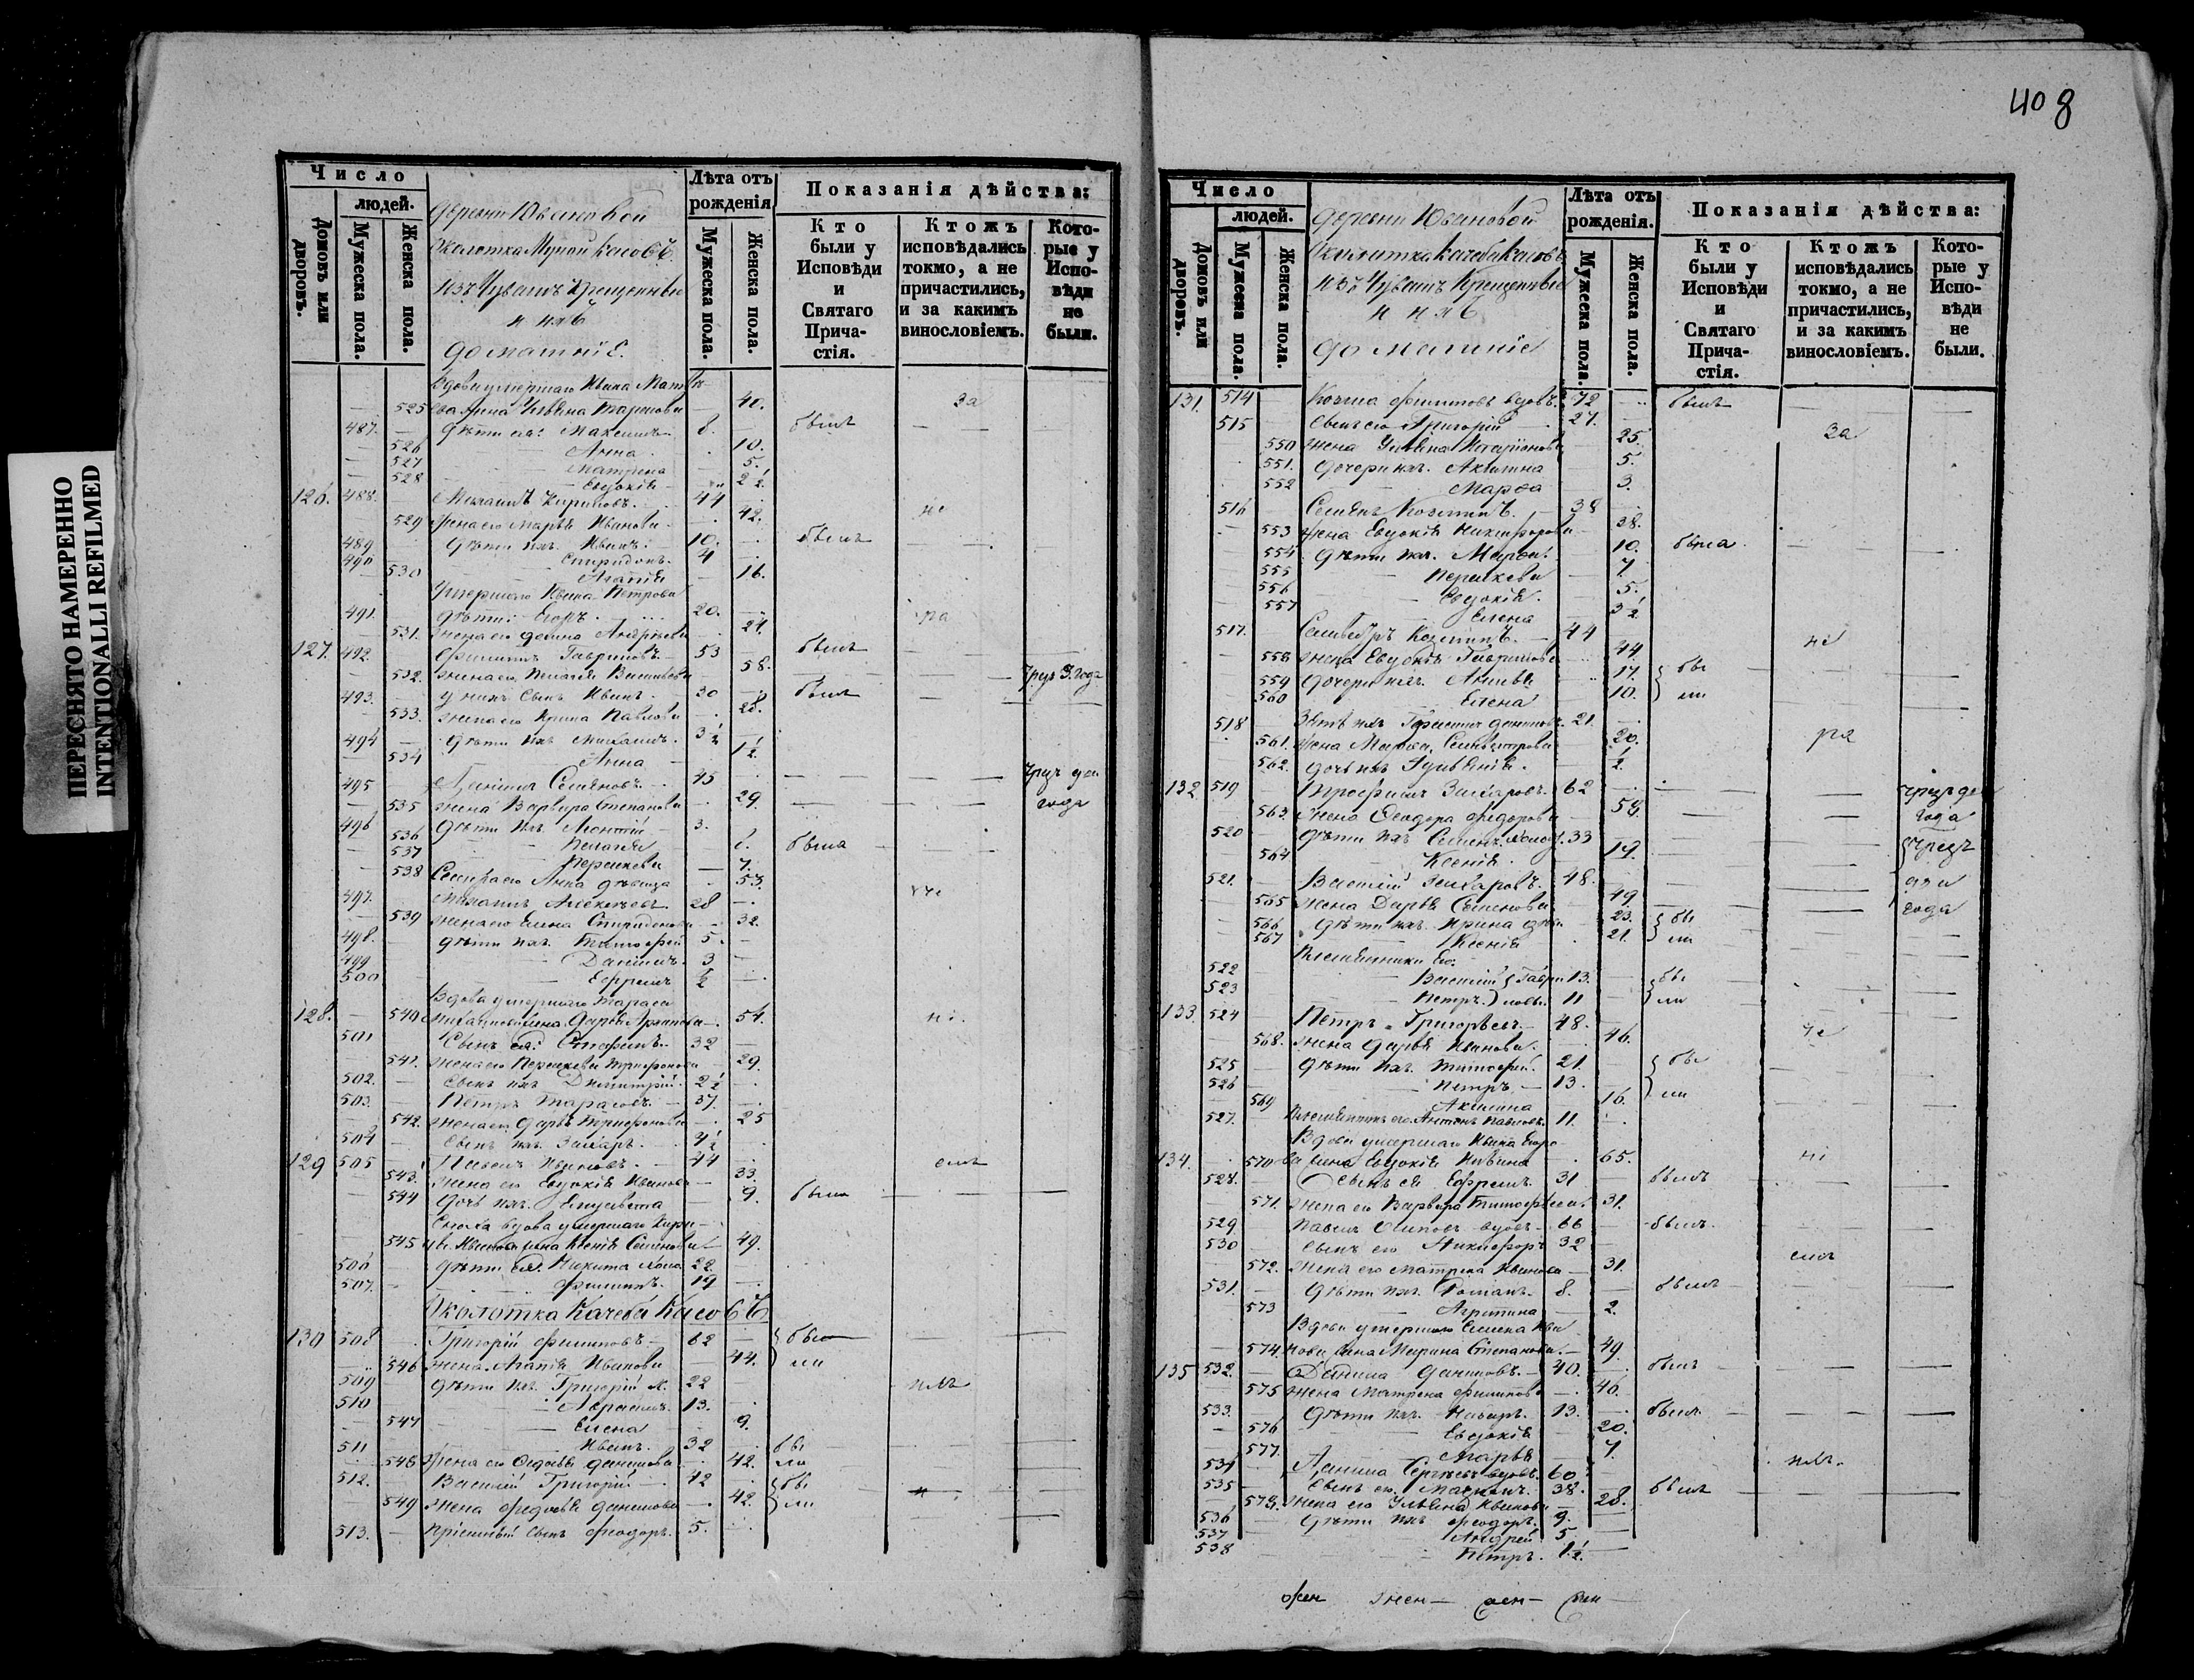 408
ПЕРЕСНЯТО НАМЕРЕННО
INTENTIONALLI REFILMED
Число
людей.
Домовъ или дворовъ.
Мужеска пола.
Женска пола.
Деревни Ювановой
Околотка
изъ Чувашъ Крещенныхъ
и ихъ
домашніе.
Лѣта отъ рожденія
Мужеска пола.
Женска пола.
Показанія дѣйства:
Кто были у Исповѣди и Святаго Причастія.
Ктожъ исповѣдались токмо, а не причастились, и за какимъ винословіемъ.
Которые у Исповѣди не были.
Вдова умершаго Ивана
525 Ульяна 40. за
487. дѣти ея: Максимъ 8. былъ
526 Анна 10.
527 Матрена 5.
528 Евдокія 2½
126. 488. Михаилъ Кириловъ 44 не
529 жена его Марья Иванова 42.
489 дѣти ихъ Иванъ 10. былъ
490 Спиридонъ 4
530 Агапія 16.
Умершаго Ивана Петрова
491. дѣти: Егоръ 20. ра
531. жена его Андреева 24.
127. 492. Филиппъ Гавриловъ 53 былъ
532. жена его Пелагея 58. чрез 3. года
493. у нихъ сынъ Иванъ 30 былъ
533. жена его Ирина Павлова 28.
494 дѣти ихъ Михаилъ 3½
534 Анна 1½
495 Данила Семеновъ 45 чрезъ два
535 жена Варвара Степанова 29. года
496 дѣти ихъ Леонтій 3.
536 Пелагея 8. была
537 Перасковья 7.
538 Сестра его Анна дѣвица 53.
497. Михаилъ Алексѣевъ 28
539 жена его Елена Спиридонова 32.
498. дѣти ихъ Тимофей 5.
499 Даніилъ 3
500 Ефремъ ½
Вдова умершаго Тараса
128. 540 Михайлова жена Дарья 54. не
501 Сынъ ея: Стефанъ 32
541. жена его Перасковья Трифонова 29.
502. сынъ ихъ Димитрій 2½
503. Петръ Тарасовъ 37.
542. жена его Дарья Трифонова 25
504 сынъ ихъ Захаръ ½
129 505 Павелъ Ивановъ 44 емъ
543. жена его Евдокія Иванова 33.
544 дочь ихъ Елизавета 9. была
Сноха вдова умершаго
545 Иванова жена Ксенія Семенова 49.
506 дѣти ея. Никита 22
507. Филиппъ 19
Околотка Качебá Касовъ
130 508 Григорій Филиповъ 62 бы
546 жена Агапія Иванова 44. ли
509 дѣти ихъ Григорій 22 нмъ
510 Абрамъ 13.
547 Елена 9.
511 Иванъ 32 бы
548 жена его Федосья Данилова 42. ли
512. Василій Григорій 42 бы
549 жена Федосья Данилова 42. ли
513. Пріемный сынъ Феодоръ 5.
Число
людей.
Домовъ или дворовъ.
Мужеска пола.
Женска пола.
Деревни Ювановой
Околотка Качебá Касовъ
изъ Чувашъ Крещенныхъ
и ихъ
домашніе
Лѣта отъ рожденія.
Мужеска пола.
Женска пола.
Показанія дѣйства:
Кто были у Исповѣди и Святаго Причастія.
Ктожъ исповѣдались токмо, а не причастились, и за какимъ винословіемъ.
Которые у Исповѣди не были.
131. 514 Козма Филиповъ вдовъ 72 былъ
515 сынъ его Григорій 27. за
550 жена Ульяна 25.
551. дочери ихъ Акилина 5.
552 Марфа 3.
516 Семенъ Козминъ 38 не
553 жена Евдокія Никифорова 38.
554 дѣти ихъ Марфа 10. была
555 Перасковья 7.
556 Евдокія 5.
557 Елена 3½
517. Сильвестръ Козминъ 44 не
558 жена Евдокія Гаврилова 44.
559 дочери ихъ 17. бы
560 Елена 10. ли
518 Зять ихъ Даниловъ 21. ра
561. жена Марфа Сильвестрова 20.
562. дочь ихъ ½.
132 519 Трофимъ Захаровъ 62 чрезъ два
563. жена Феодора Федорова 58. года
520 дѣти ихъ Семенъ холост. 33 чрезъ
564 Ксенія 19. два
521. Василій Захаровъ 48. года
565 жена Дарья Семенова 49.
566 дѣти ихъ Ирина 23. бы
567 Ксенія 21. ли
Племянники его
522 Василій Гаври 13. бы
523 Петръ ловы 11 ли
133. 524 Петръ Григорьевъ 48. не
568. жена Дарья Иванова 46.
525 дѣти ихъ Тимофей 21. бы
526 Петръ 13. ли
569 Акилина 16.
527. Племянникъ его Антонъ Павловъ 11.
Вдова умершаго Ивана Егоро-
134. 570 ва жена Евдокія 65. не
528. Сынъ ея Ефремъ 31 былъ
571. жена его Варвара Тимофеева 31.
529 Павелъ Осиповъ вдовъ 66 былъ
530 сынъ его Никифоръ 32 емъ
572. жена его Матрена Иванова 31.
531. дѣти ихъ Романъ 8. былъ
573 Агрипина 2.
Вдова умершаго Семена Ива
574. нова жена Марина Степанова 49.
135 532. Данила Даниловъ 40. былъ
575 жена Матрена Филипова 46.
533. дѣти ихъ Назаръ 13. былъ
576 Евдокія 20.
577. Марья 7.
534 Данила Сергѣевъ вдовъ 60 нмъ
535 Сынъ его Максимъ 38. былъ
578. жена его Ульяна Иванова 28.
536 дѣти ихъ Феодоръ 9.
537 Андрей 5
538 Петръ 1½